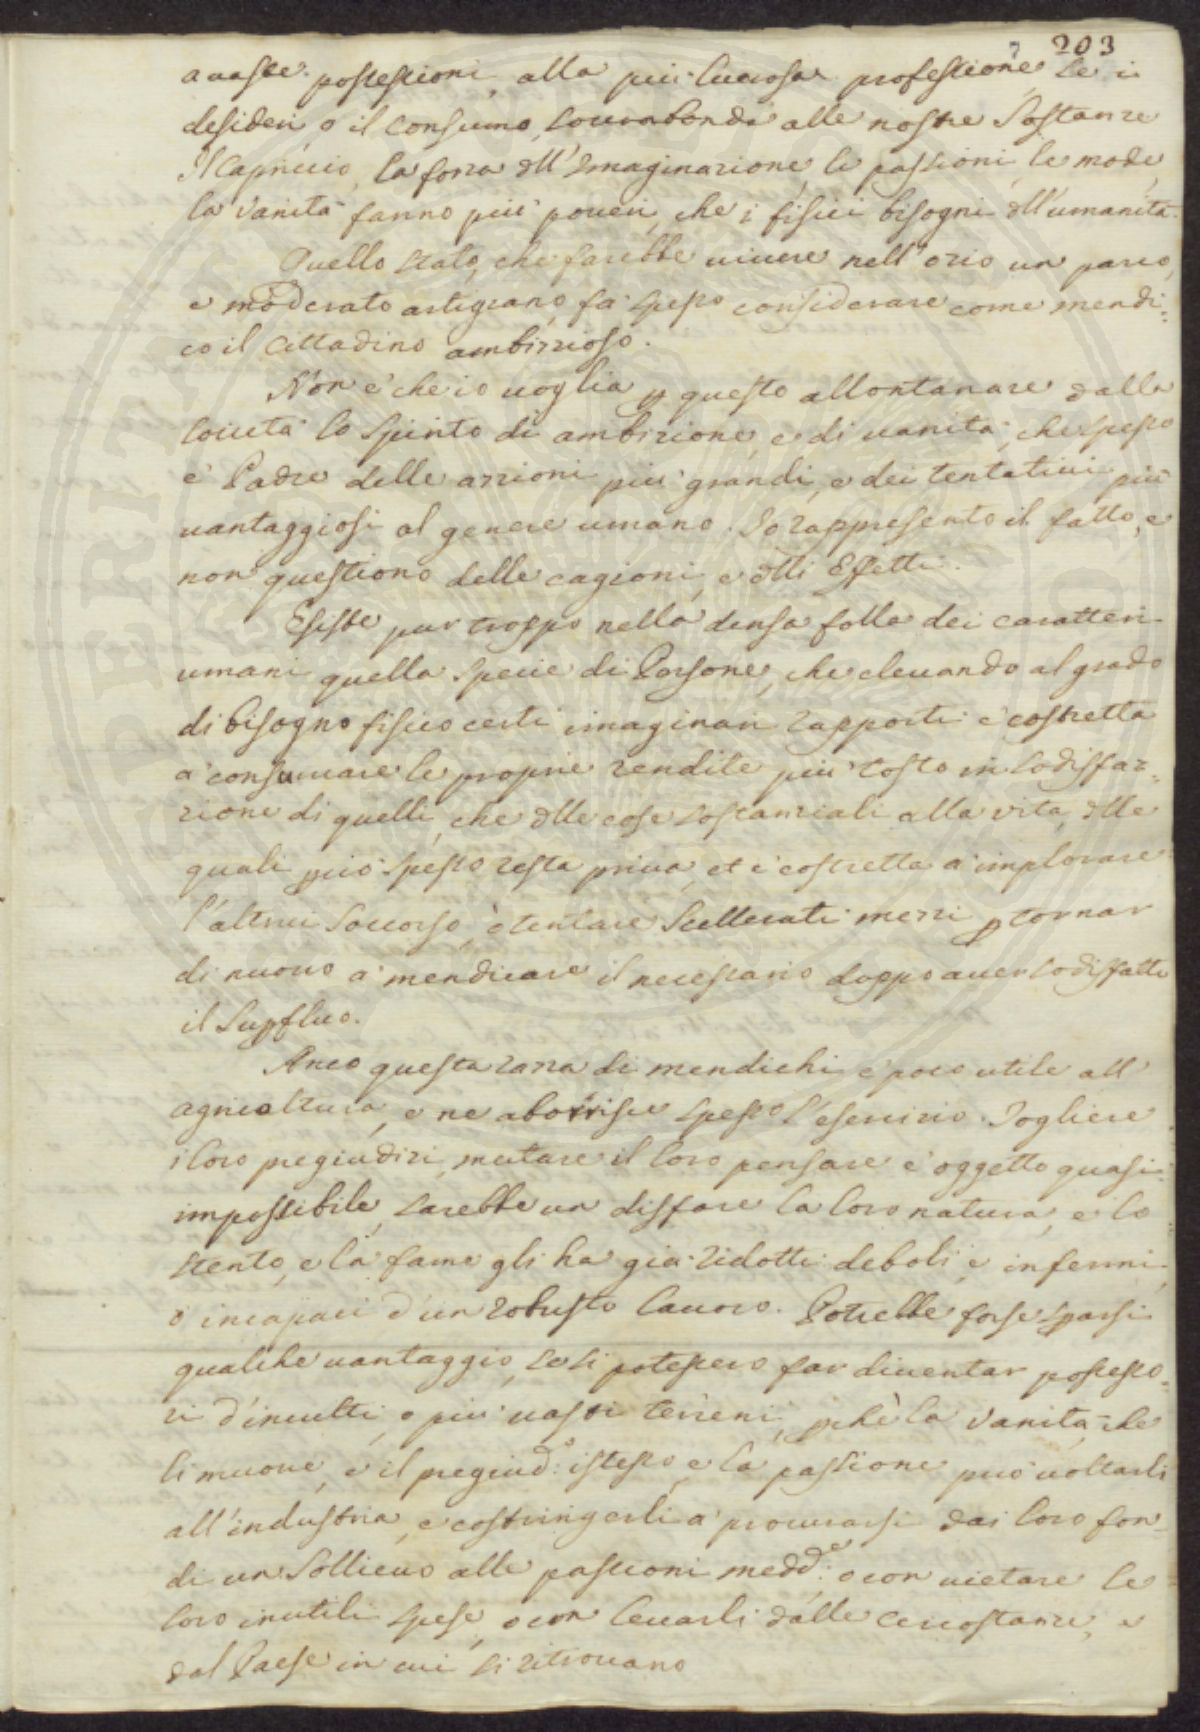 7 203
a uaste possessioni, alla più lucrosa professione, se i
desiderj, o il consumo sourabonda alle nostre sostanze
Il capriccio, la forza dell'imaginazione, le passioni, le mode,
la vanità fanno più poueri, che i fisici bisogni dell'umanità.
Quello stato, che farebbe uiuere nell'ozio un parco,
e moderato artigiano, fà spesso considerare come mendi=
co il Cittadino ambizzioso.
Non è che io uoglia p questo allontanare dalla
società lo spirito di ambizione, e di uanità, che spesso
è Padre delle azzioni più grandi, e dei tentatiui più
uantaggiosi al genere umano. Io rappresento il fatto, e
non questiono delle cagioni, e dlli Effetti.
Esiste pur troppo nella densa folla dei caratteri
umani quella specie di Persone, che eleuando al grado
di bisogno fisico certi imaginarj rapporti è costretta
a consumare le proprie rendite più tosto in sodisfaz=
zione di quelli, che dlle cose sostanziali alla vita, dlle
quali più spesso resta priua, et è costretta a implorare
l'altrui soccorso, ò tentare scellerati mezzi p tornar
di nuouo a mendicare il necessario doppo auer sodisfatto
il supfluo.
Anco questa razza di mendichi è poco utile all'
agricoltura, e ne aborrisce spesso l'esercizio. Togliere
i loro pregiudizi, mutare il loro pensare è oggetto quasi
impossibile, sarebbe un disfare la loro natura, e lo
stento, e la fame gli ha già ridotti deboli, e infermi,
o incapaci d'un robusto lauoro. Potrebbe forse sparsi
qualche uantaggio, se si potessero far diuentar possesso=
ri d'inculti, o più uasti terreni, pchè la vanità, che
li muoue, e il pregiud.o istesso, e la passione può uoltarli
all'industria, e costringerli a procurarsi dai loro fon=
di un sollieuo alle passioni medd.e o con uietare le
loro inutili spese, o con leuarli dalle circostanze, e
dal Paese in cui si ritrouano